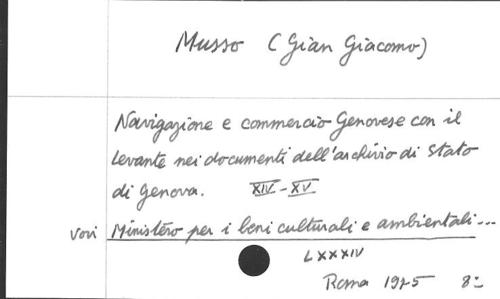 Musso (Gian Giacomo)
Navigazione e commercio Genovese con il
Levante nei documenti dell'archivio di Stato
di Genova. XIV-XV
vori Ministéro per i beni culturali e ambientali...
LXXXIV
Roma 1975 8º